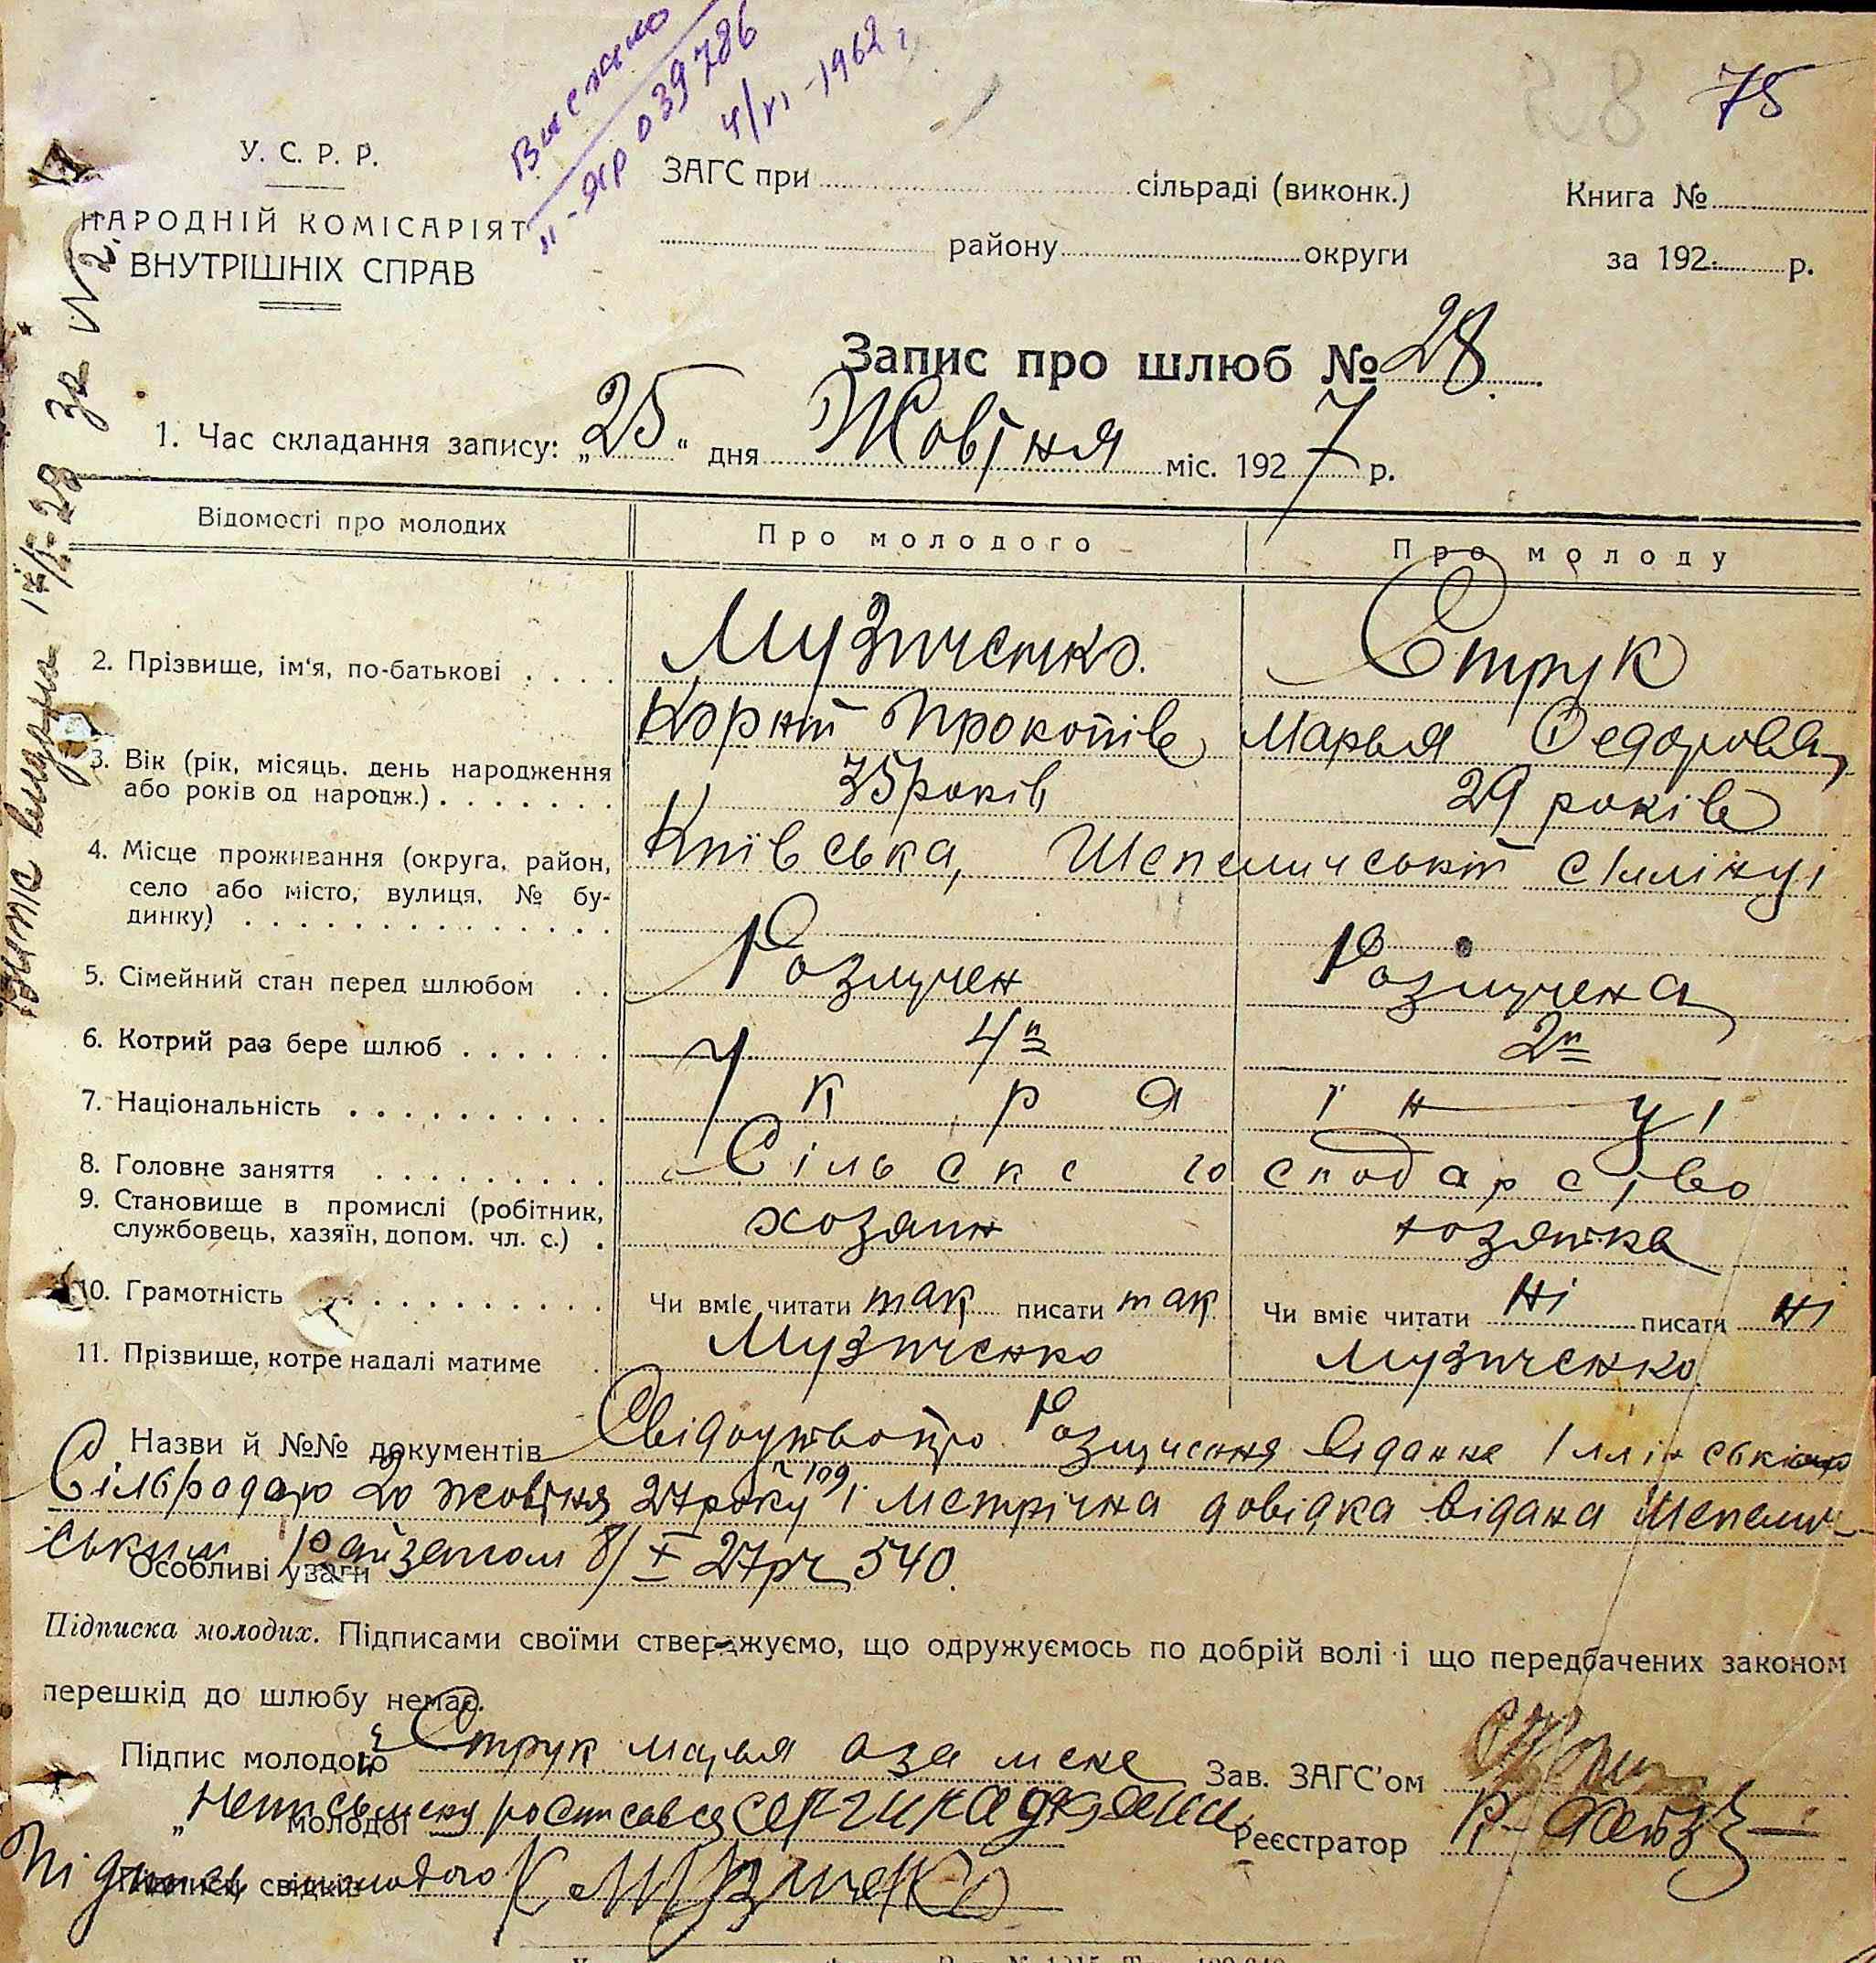 Выслано
II-ЯР 039786
4/VI-1962 г
75
У. С. Р. Р.
НАРОДНІЙ КОМІСАРІЯТ
ВНУТРІШНІХ СПРАВ
ЗАГС при сільраді (виконк.)
району округи
Книга №
за 192 р.
Запис про шлюб № 28.
1. Час складання запису: „25“ дня Жовтня міс. 1927 р.
Відомості про молодих Про молодого Про молоду
2. Прізвище, ім'я, по-батькові Музиченко. Струк
Корній Прокопів Марья Федорова
3. Вік (рік, місяць, день народження або років од народж.) 35 років 29 років
4. Місце проживання (округа, район, село або місто, вулиця, № будинку) Київська, Шепелич ськ Іллінці
5. Сімейний стан перед шлюбом Розлучен Розлучена
6. Котрий раз бере шлюб 4й 2й
7. Національність Українці
8. Головне заняття Сільске господарство
9. Становище в промислі (робітник, службовець, хазяїн, допом. чл. с.) хозяин хозяйка
10. Грамотність Чи вміє читати так писати так Чи вміє читати ні писати ні
11. Прізвище, котре надалі матиме Музиченко Музиченко
Назви й №№ документів Свідоцтво про Розлучення видане Іллінською
Сільрадою 20 жовтня 27 року №109 і Метрична довідка видана Шепелич-
ським Райзагсом 8/X 27р № 540.
Особливі уваги
Підписка молодих. Підписами своїми стверджуємо, що одружуємось по добрій волі і що передбачених законом
перешкід до шлюбу немає.
Підпис молодого Струк марья аза мене
Зав. ЗАГС'ом
„ молодої неписьмену росписався
Реєстратор
Підписи свідків
Підпись молодого К Музиченко
за №
видана 17/I-28